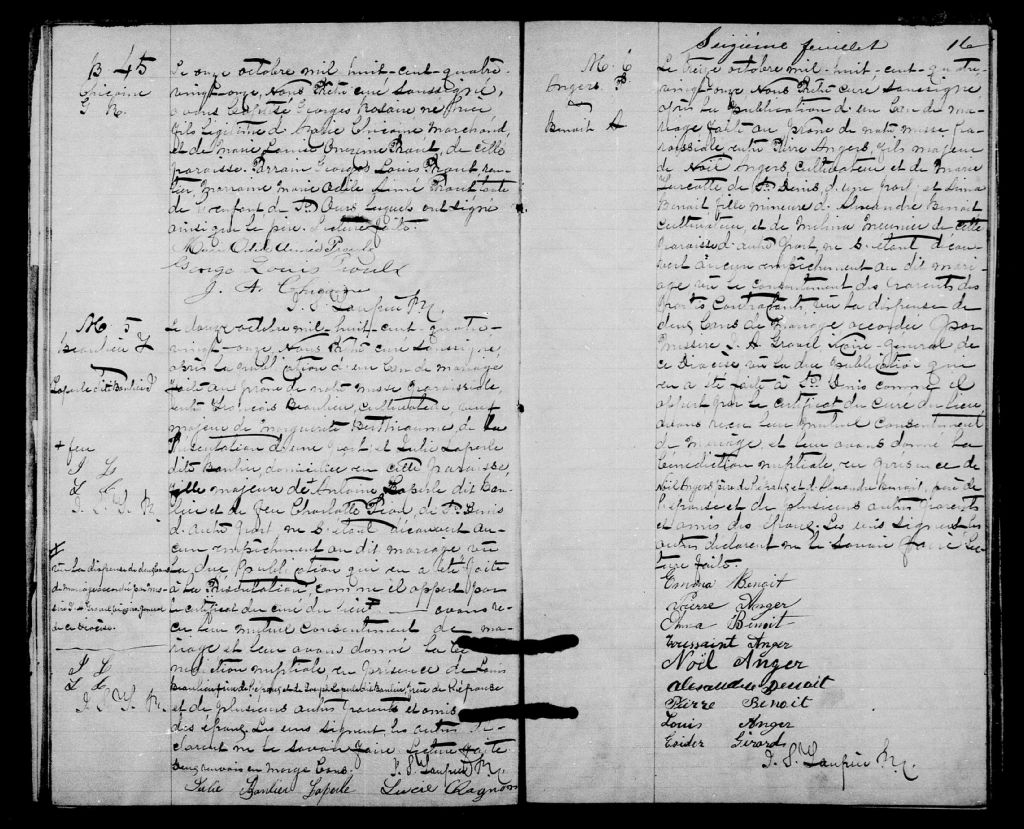 B 45
Chicoine
G. R.
Le onze octobre mil huit-cent-quatre-
vingt-onze, Nous Prêtre curé soussigné,
avons baptisé Georges Rosaire né hier
fils légitime de Chicoine Marchand,
et de Marie Louise Onezime Proulx, de cette
paroisse. Parrain Georges Louis Proulx ren-
tier, Marraine Marie Odile Proulx tante
de l'enfant de St. Ours lesquels ont signé
ainsi que le père. Lecture faite.
Marie Odile
George Louis Proulx
J. A. Chicoine
M. 5
Beaulieu F
Laperle dit Banlier J
Le douze octobre mil-huit-cent-quatre-
vingt-onze, Nous Prêtre curé soussigné,
après la publication d'un ban de mariage
faite au prône de notre messe paroissiale
entre François Beaulieu, cultivateur, veuf
majeur de Marguerite Berthiaume de la
Présentation d'une part; et Julie Laperle
dite Banlier, domiciliée en cette paroisse,
+ feu
fille majeure de Antoine Laperle dit Ban-
lier et de feu Charlotte de St. Denis
d'autre part, ne s'étant découvert au-
cun empêchement au dit mariage vu
# vu la dispense de deux bans
de mariage accordée par
de ce diocèse.
la due publication qui en a été faite
à la Présentation, comme il appert par
le certificat du curé du lieu # avons re-
çu leur mutuel consentement de ma-
riage et leur avons donné la bé-
nédiction nuptiale en présence de Louis
Beaulieu frère de l'époux et de Joseph Laperle dit Banlier, frère de l'épouse
et de plusieurs autres parents et amis
des époux. Les uns signent, les autres dé-
clarent ne le savoir faire. Lecture faite
Deux renvois en marge bons.
Julie Banlier Laperle
Seizième feuillet 16
M. 6
Angers P.
Benoit A
Le treize octobre mil-huit-cent-quatre-
vingt-onze Nous Prêtre curé soussigné
après la publication d'un ban de ma-
riage faite au prône de notre messe pa-
roissiale entre Pierre Angers, fils majeur
de Noël Angers, cultivateur et de Marie
Turcotte de St. Denis, d'une part; et
Benoit fille mineure d'Alexandre Benoit
cultivateur, et de Melina Meunier de cette
paroisse d'autre part, ne s'étant décou-
vert aucun empêchement au dit mari-
age vu le consentement des parents des
parties contractantes, vu la dispense de
deux bans de mariage accordée par
Messire Gravel Vicaire-général de
ce Diocèse vu la due publication qui
en a été faite à St. Denis comme il
appert par le certificat du curé du lieu,
avons reçu leur mutuel consentement
de mariage, et leur avons donné la
bénédiction nuptiale, en présence de
Noël Angers père de l'époux, et d'Alexandre Benoit, père de
l'épouse et de plusieurs autres parents
et amis des époux. Les uns signent les
autres déclarent ne le savoir faire. Lec-
ture faite.
Emma Benoit
Pierre Anger
Elma Benoit
Toussaint Anger
Noël Anger
Alexandre Benoit
Pierre Benoit
Louis Anger
Girard